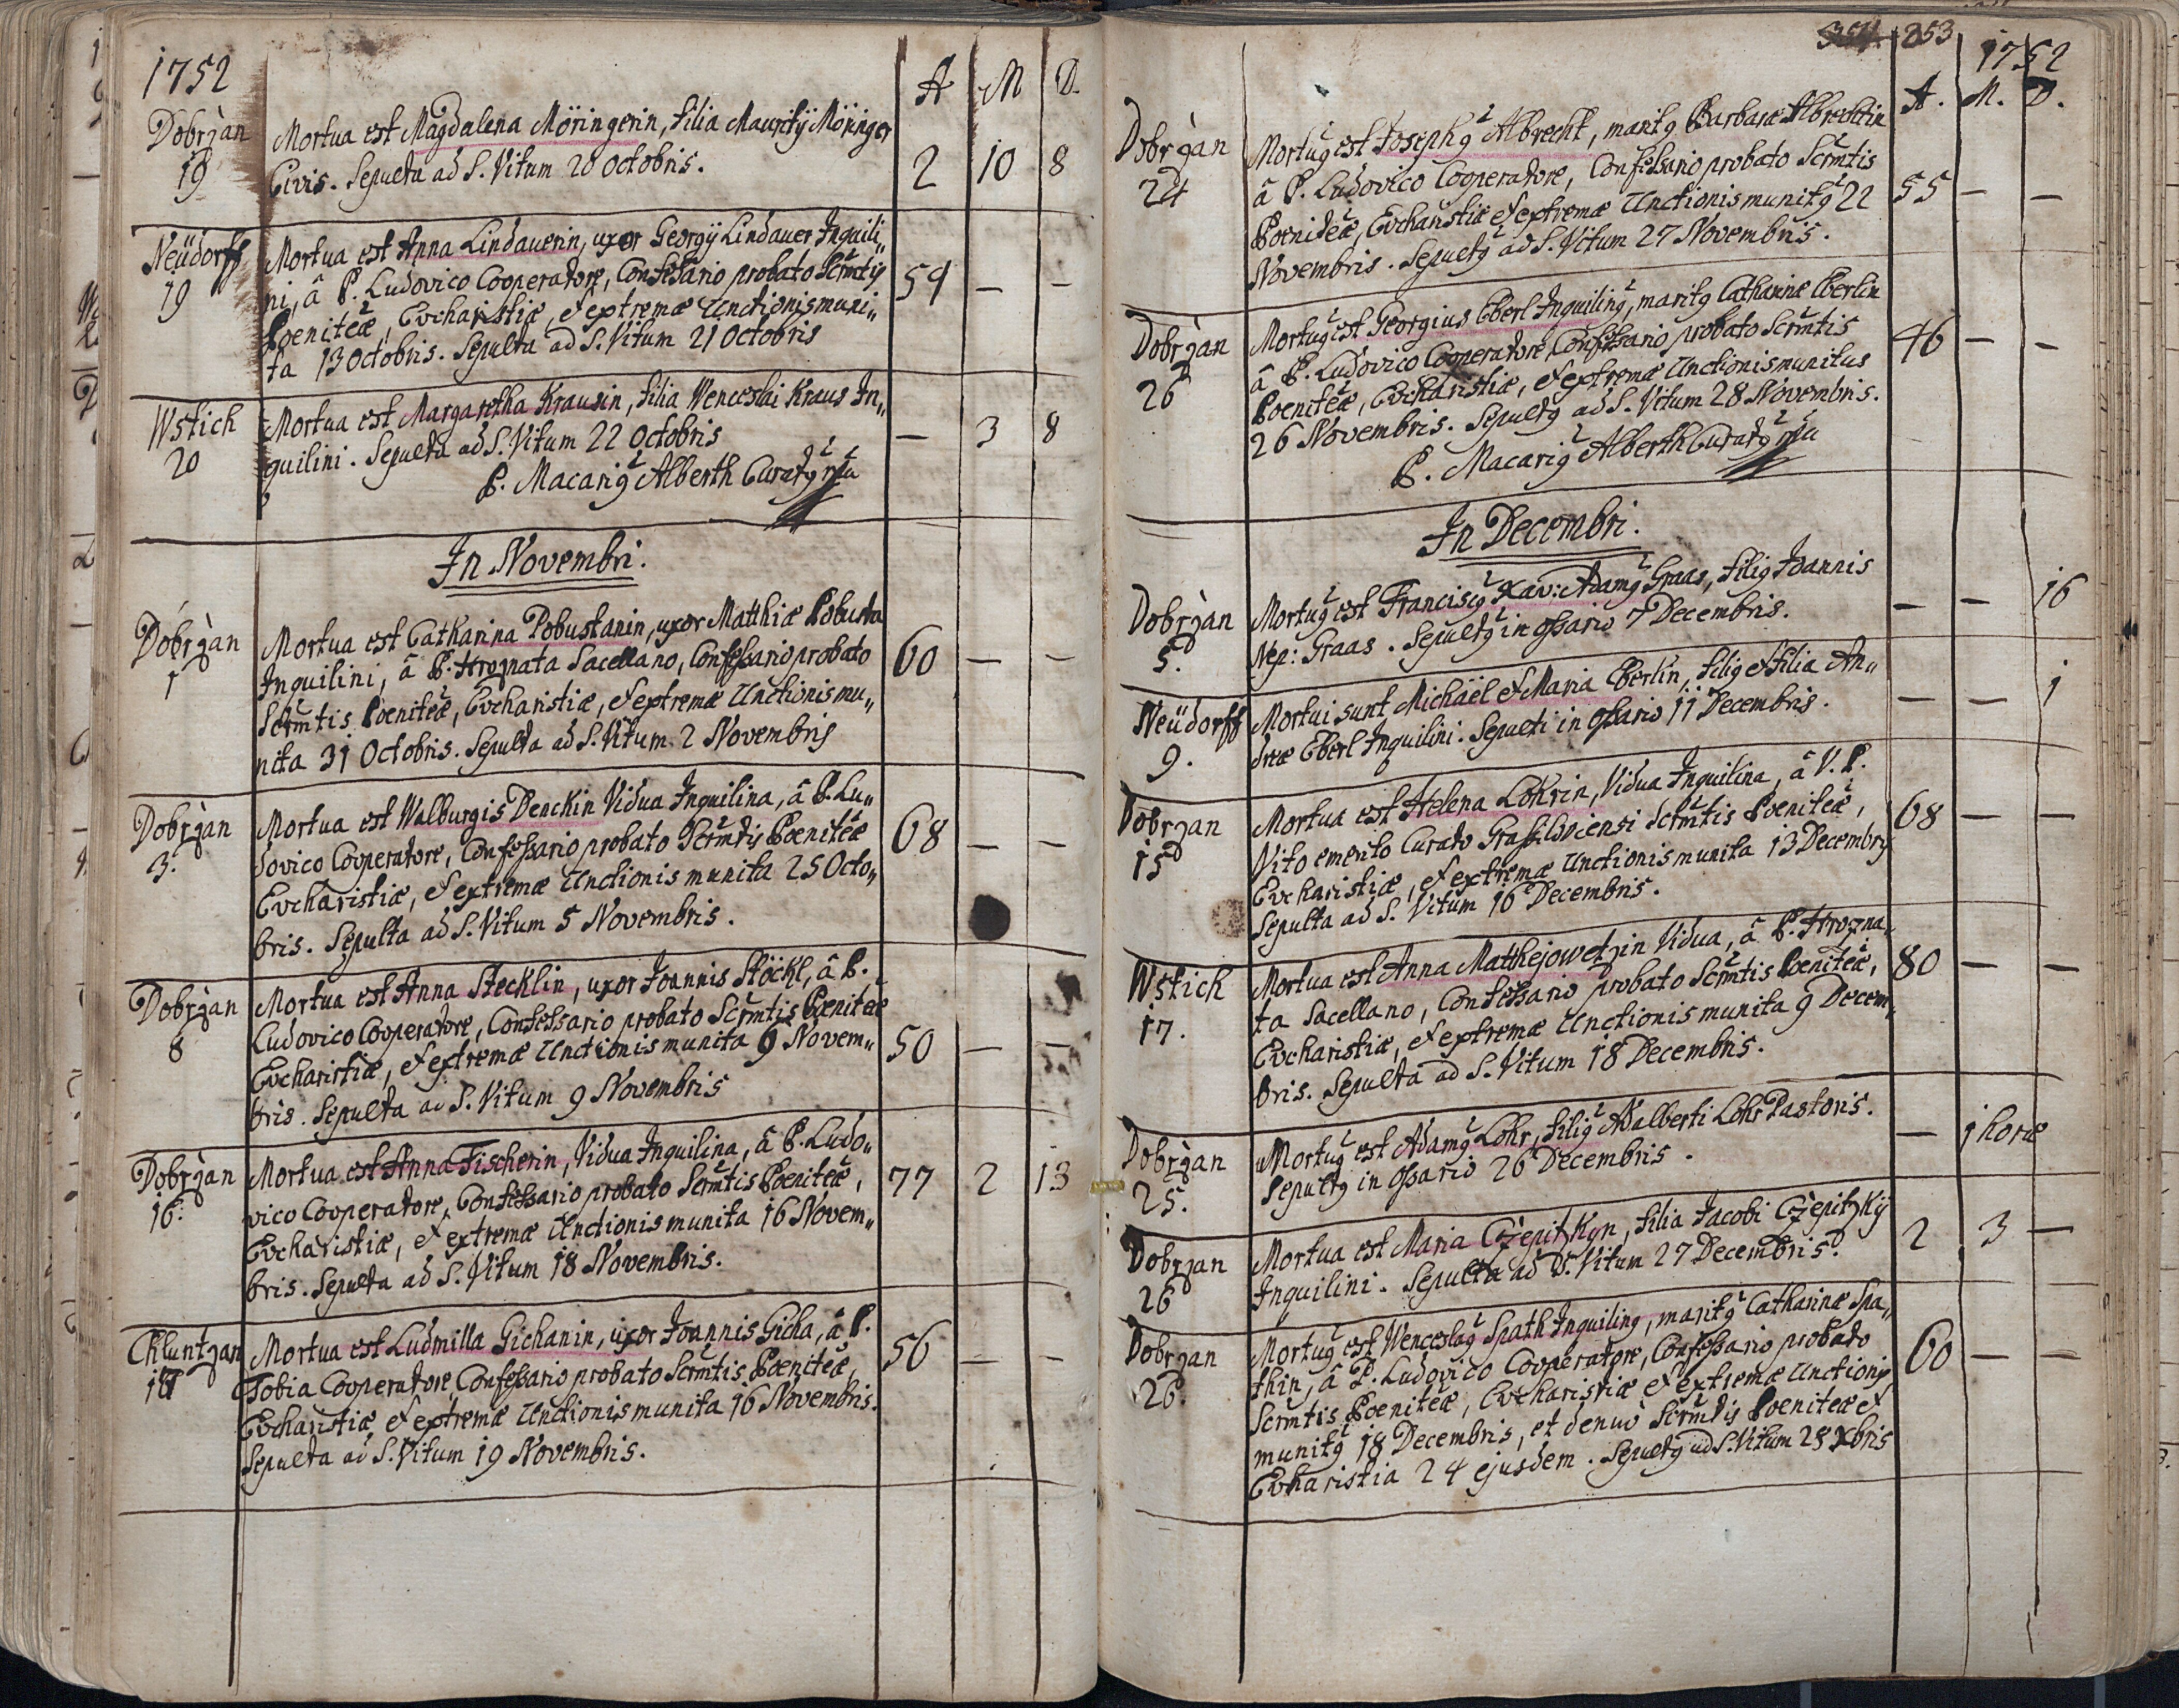 1752
A M D.
Dobrzan
19
Mortua est Magdalena Möringerin, filia Mauritÿ Möringer
Civis. Sepulta ad S. Vitum 20 Octobris.
2 10 8
Neüdorff
19
Mortua est Anna Lindauerin, uxor Georgÿ Lindauer Inquili„
ni, â P. Ludovico Cooperatore, Confessario probato Scrmtis
Poeniteæ, Evcharistiæ, et extremæ Unctionis muni„
ta 13 Octobris. Sepulta ad S. Vitum 21 Octobris
54 — —
Wstich
20
Mortua est Margaretha Krausin, filia Wenceslai Kraus In„
quilini. Sepulta ad S. Vitum 22 Octobris
— 3 8
P. Macarig Alberth Curatg mpa
In Novembri.
Dobrzan
1
Mortua est Catharina Pobustanin, uxor Matthiæ Pobusta
Inquilini, â P. Hroznata Sacellano, Confessario probato
Scrmtis Poeniteæ, Evcharistiæ, et extremæ Unctionis mu„
nita 31 Octobris. Sepulta ad S. Vitum 2 Novembris
60 — —
Dobrzan
3.
Mortua est Walburgis Denckin Vidua Inquilina, â P. Lu„
dovico Cooperatore, Confessario probato Scrmtis Poeniteæ
Evcharistiæ, et extremæ Unctionis munita 25 Octo„
bris. Sepulta ad S. Vitum 5 Novembris.
68 — —
Dobrzan
8
Mortua est Anna Stecklin, uxor Joannis Stöckl, â P.
Ludovico Cooperatore, Confessario probato Scrmtis Poeniteæ
Evcharistiæ, et extremæ Unctionis munita 6 Novem„
bris. Sepulta ad S. Vitum 9 Novembris
50 — —
Dobrzan
16.
Mortua est Anna Fischerin, Vidua Inquilina, â P. Ludo„
vico Cooperatore, Confessario probato Scrmtis Poeniteæ,
Evcharistiæ, et extremæ Unctionis munita 16 Novem„
bris. Sepulta ad S. Vitum 18 Novembris.
77 2 13
Chluntzan
Mortua est Ludmilla Gichanin, uxor Joannis Gicha, â P.
Tobia Cooperatore, Confessario probato Scrmtis Poeniteæ,
Evcharistiæ, et extremæ Unctionis munita 16 Novembris.
Sepulta ad S. Vitum 19 Novembris.
56 — —
253
1752
A. M. D.
Dobrzan
24
Mortug est Josephg Albrecht, maritg Barbaræ Albrechtin
â P. Ludovico Cooperatore, Confessario probato Scrmtis
Poeniteæ, Evcharistiæ et extremæ Unctionis munitg 22
Novembris. Sepultg ad S. Vitum 27 Novembris.
55 — —
Dobrzan
26
Mortug est Georgius Eberl Inquiling, maritg Catharinæ Eberlin
â P. Ludovico Cooperatore, Confessario probato Scrmtis
Poeniteæ, Evcharistiæ, et extremæ Unctionis munitus
26 Novembris. Sepultg ad S. Vitum 28 Novembris.
46 — —
P. Macarig Alberth Curatg mpa
In Decembri.
Dobrzan
5.
Mortug est Franciscg Xav: Adamg Graas, filig Joannis
Nep: Graas. Sepultg in ossario 7 Decembris.
— — 16
Neüdorff
9.
Mortui sunt Michaël et Maria Eberlin, filig et filia An„
dreæ Eberl Inquilini. Sepulti in ossario 11 Decembris.
— — 1
Dobrzan
15
Mortua est Helena Lohrin, Vidua Inquilina, â V. P.
Vito emerito Curato Scrmtis Poeniteæ,
Evcharistiæ, et extremæ Unctionis munita 13 Decembris
Sepulta ad S. Vitum 16 Decembris.
68 — —
Wstich
17.
Mortua est Anna Matthejowetzin Vidua, â P. Hrozna„
ta Sacellano, Confessario probato Scrmtis Poeniteæ,
Evcharistiæ, et extremæ Unctionis munita 9 Decem„
bris. Sepulta ad S. Vitum 18 Decembris.
80 — —
Dobrzan
25.
Mortug est Adamg Lohr, filig Adalberti Lohr Pastoris.
Sepultg in ossario 26 Decembris.
— 1 horæ
Dobrzan
26
Mortua est Maria Czepitzkyn, filia Jacobi Czepitzkÿ
Inquilini. Sepulta ad S. Vitum 27 Decembris.
2 3 —
Dobrzan
26.
Mortug est Wenceslag Spath Inquiling, maritg Catharinæ Spa„
thin, â P. Ludovico Cooperatore, Confessario probato
Scrmtis Poeniteæ, Evcharistiæ et extremæ Unctionis
munitg 18 Decembris, et denuo Scrmtis Poeniteæ et
Evcharistia 24 ejusdem. Sepultg ad S. Vitum 28 Xbris
60 — —